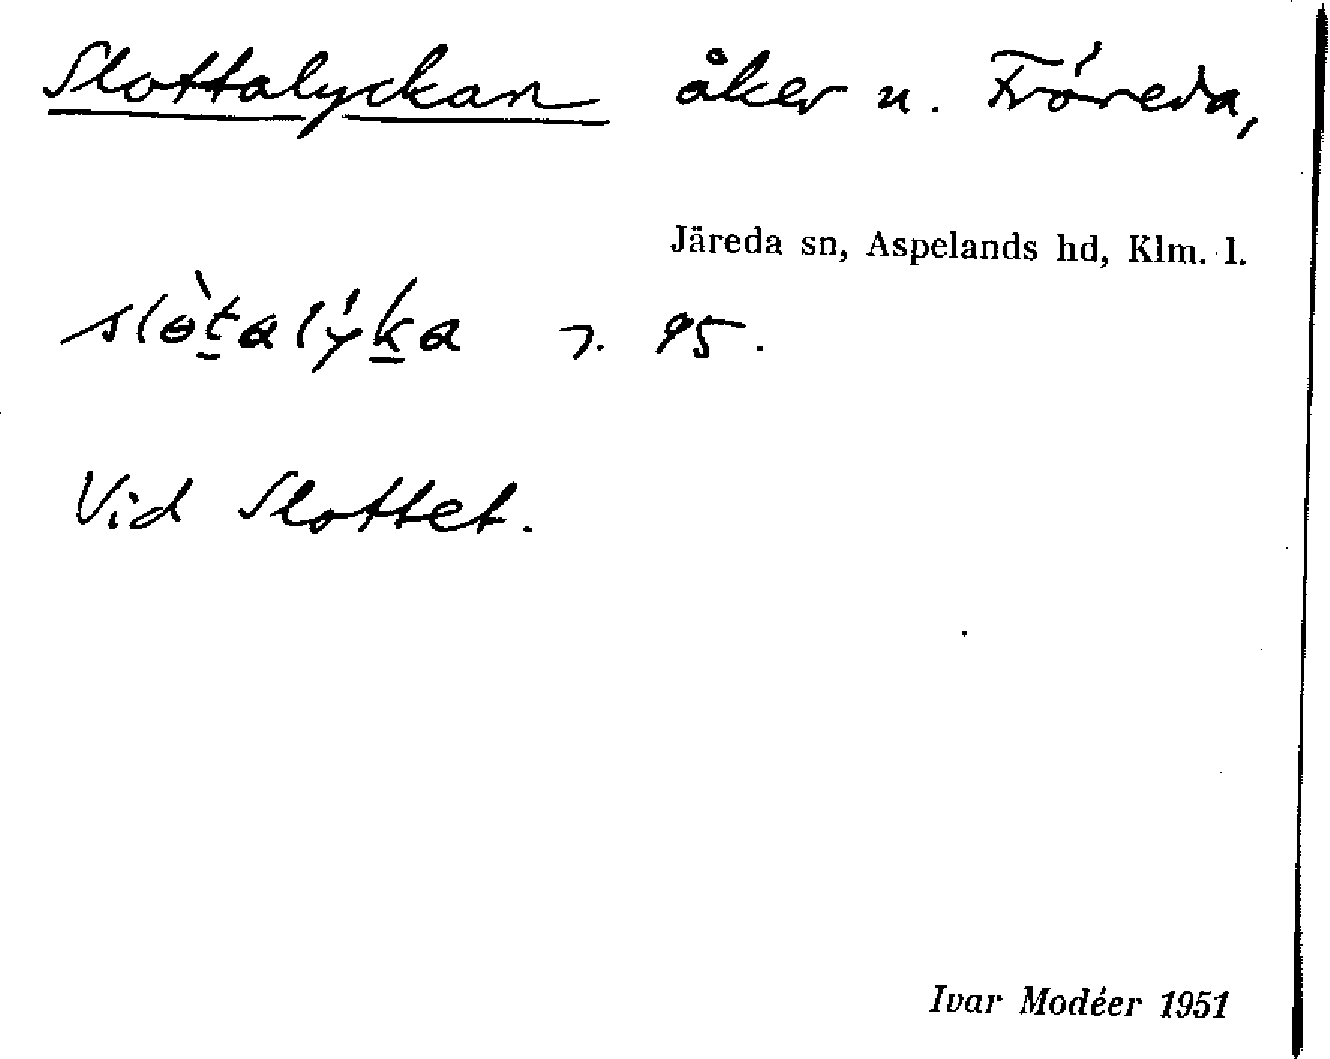 Slottalyckan åker u. Fröreda,
Järeda sn, Aspelands hd, Klm. l.
slòtalýka 95.
Vid Slottet.
Ivar Modéer 1951